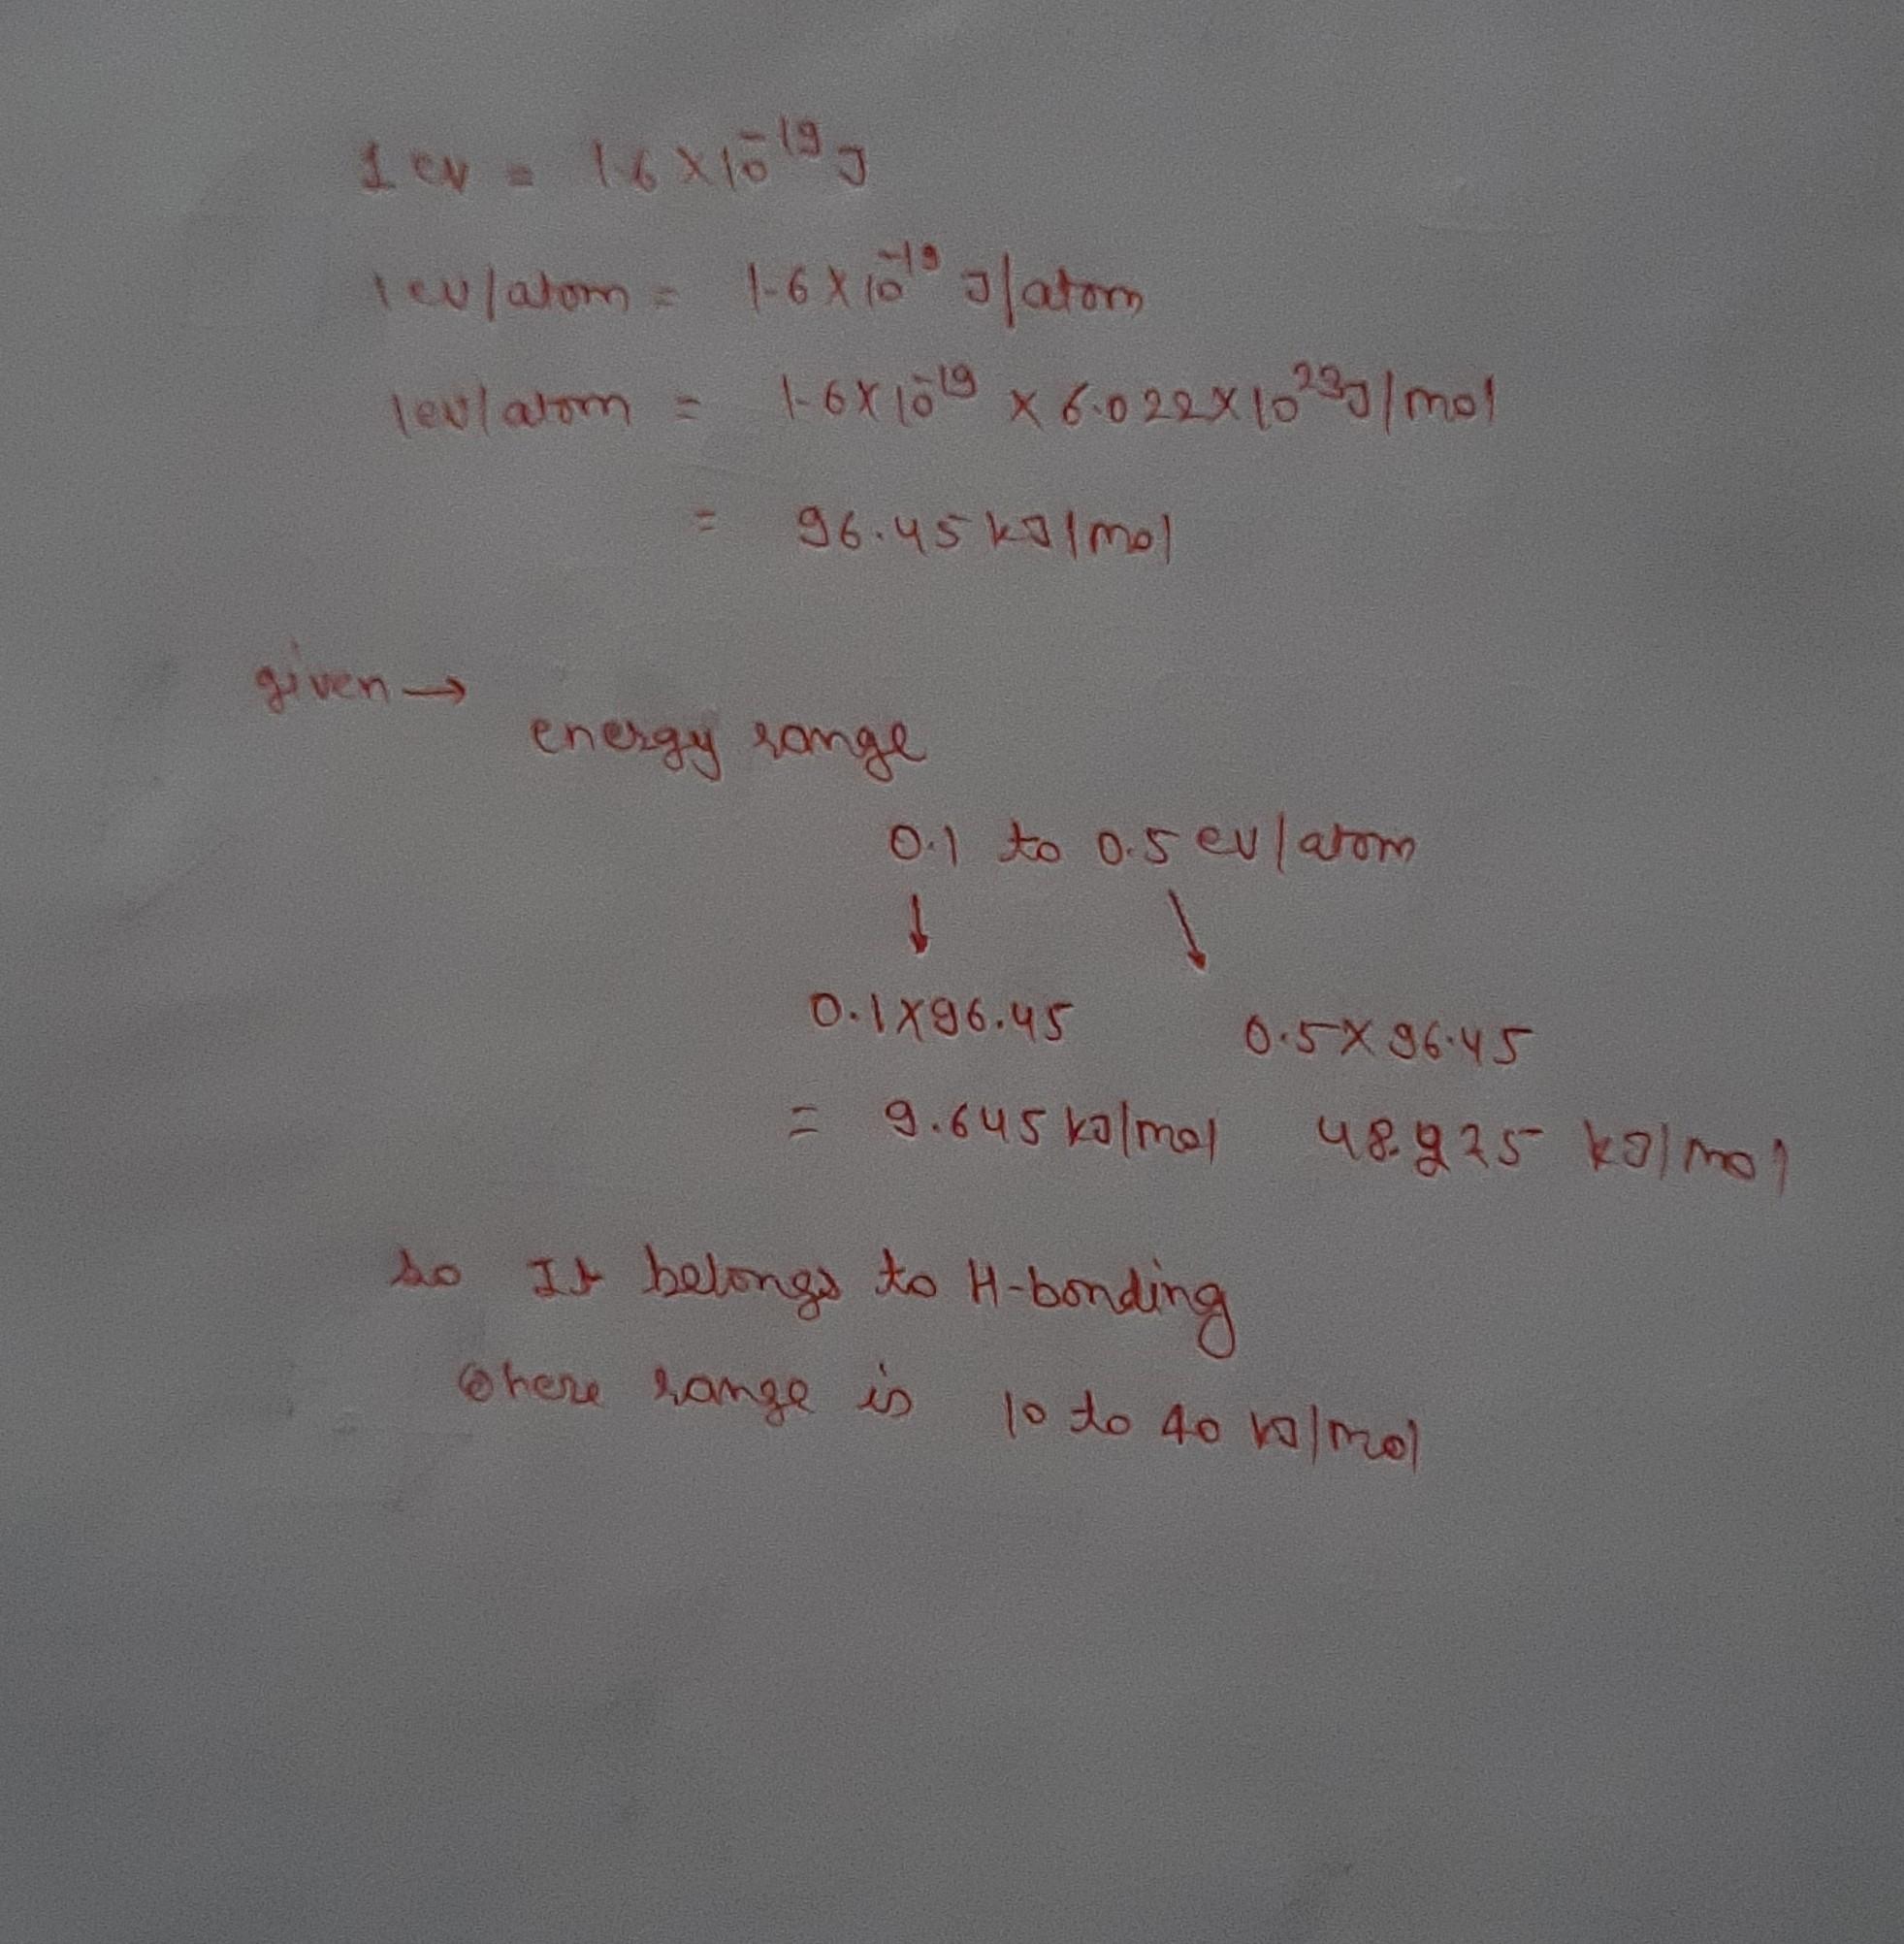 1 ev = 1.6 × 10^-19 J
1ev/atom = 1.6 × 10^-19 J/atom
1ev/atom = 1.6 × 10^-19 × 6.022 × 10^23 J/mol
= 96.45 kJ/mol
given →
energy range
0.1 to 0.5 ev/atom
↓ ↘
0.1×96.45 0.5×96.45
= 9.645 kJ/mol 48.225 kJ/mol
so It belongs to H-bonding
where range is 10 to 40 kJ/mol